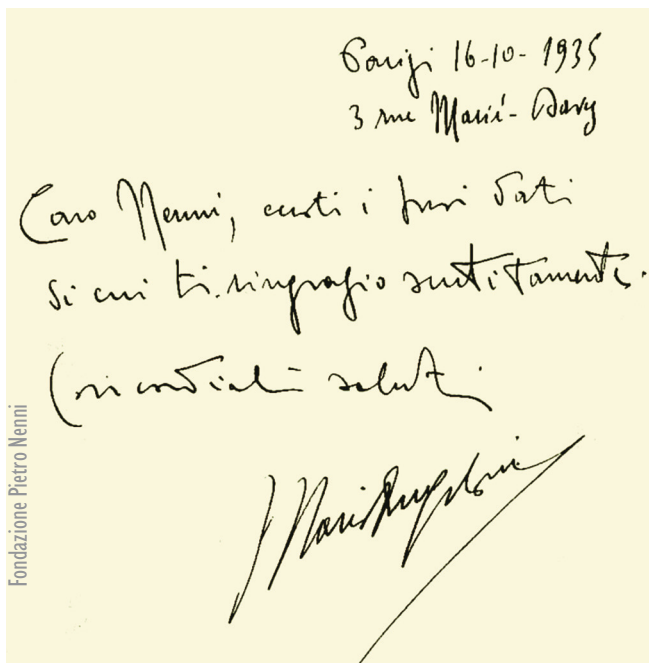 Parigi 16-10-1935
3 rue Marié-Davy
Caro Nenni, eccoti i tuoi dati
di cui ti ringrazio sentitamente.
Con cordiali saluti
Mario Angeloni
Fondazione Pietro Nenni